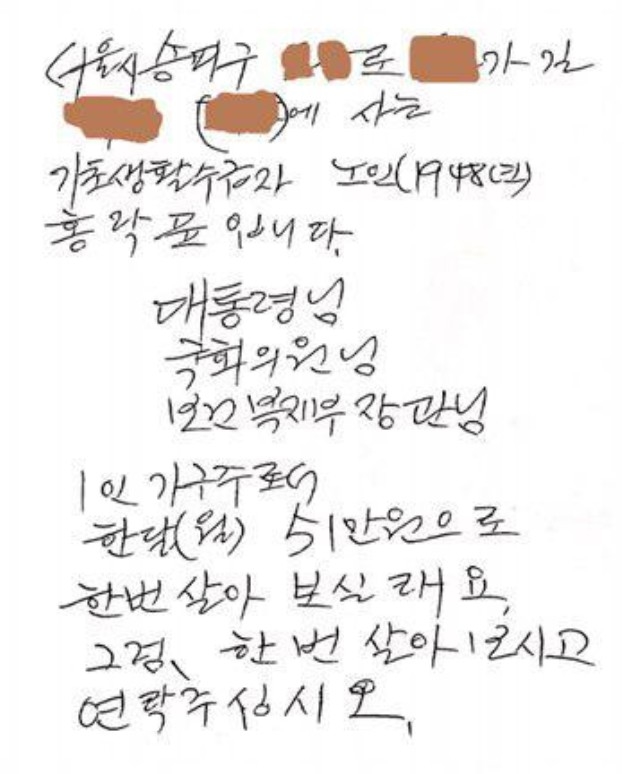 서울시 송파구 로 가길
( )에 사는
기초생활수급자 노인(1948년)
홍락표입니다.
대통령님
국회의원님
보건복지부장관님
1인 가구주로서
한달(월) 51만원으로
한번 살아 보실래요.
그럼, 한번 살아보시고
연락주십시오.